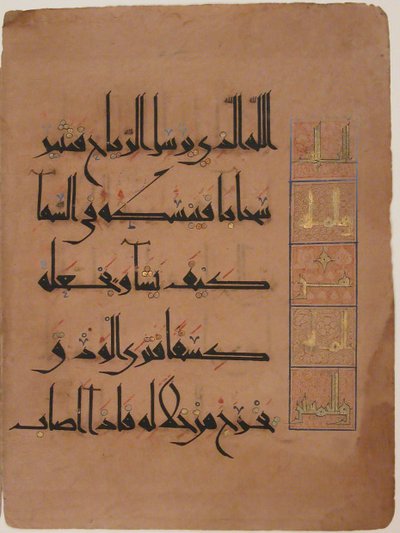 الله الذي يرسل الرياح فتثير
سحابا فيبسطه في السما
كيف يشا ويجعله
كسفا فترى الودق
يخرج من خلله فاذا اصاب